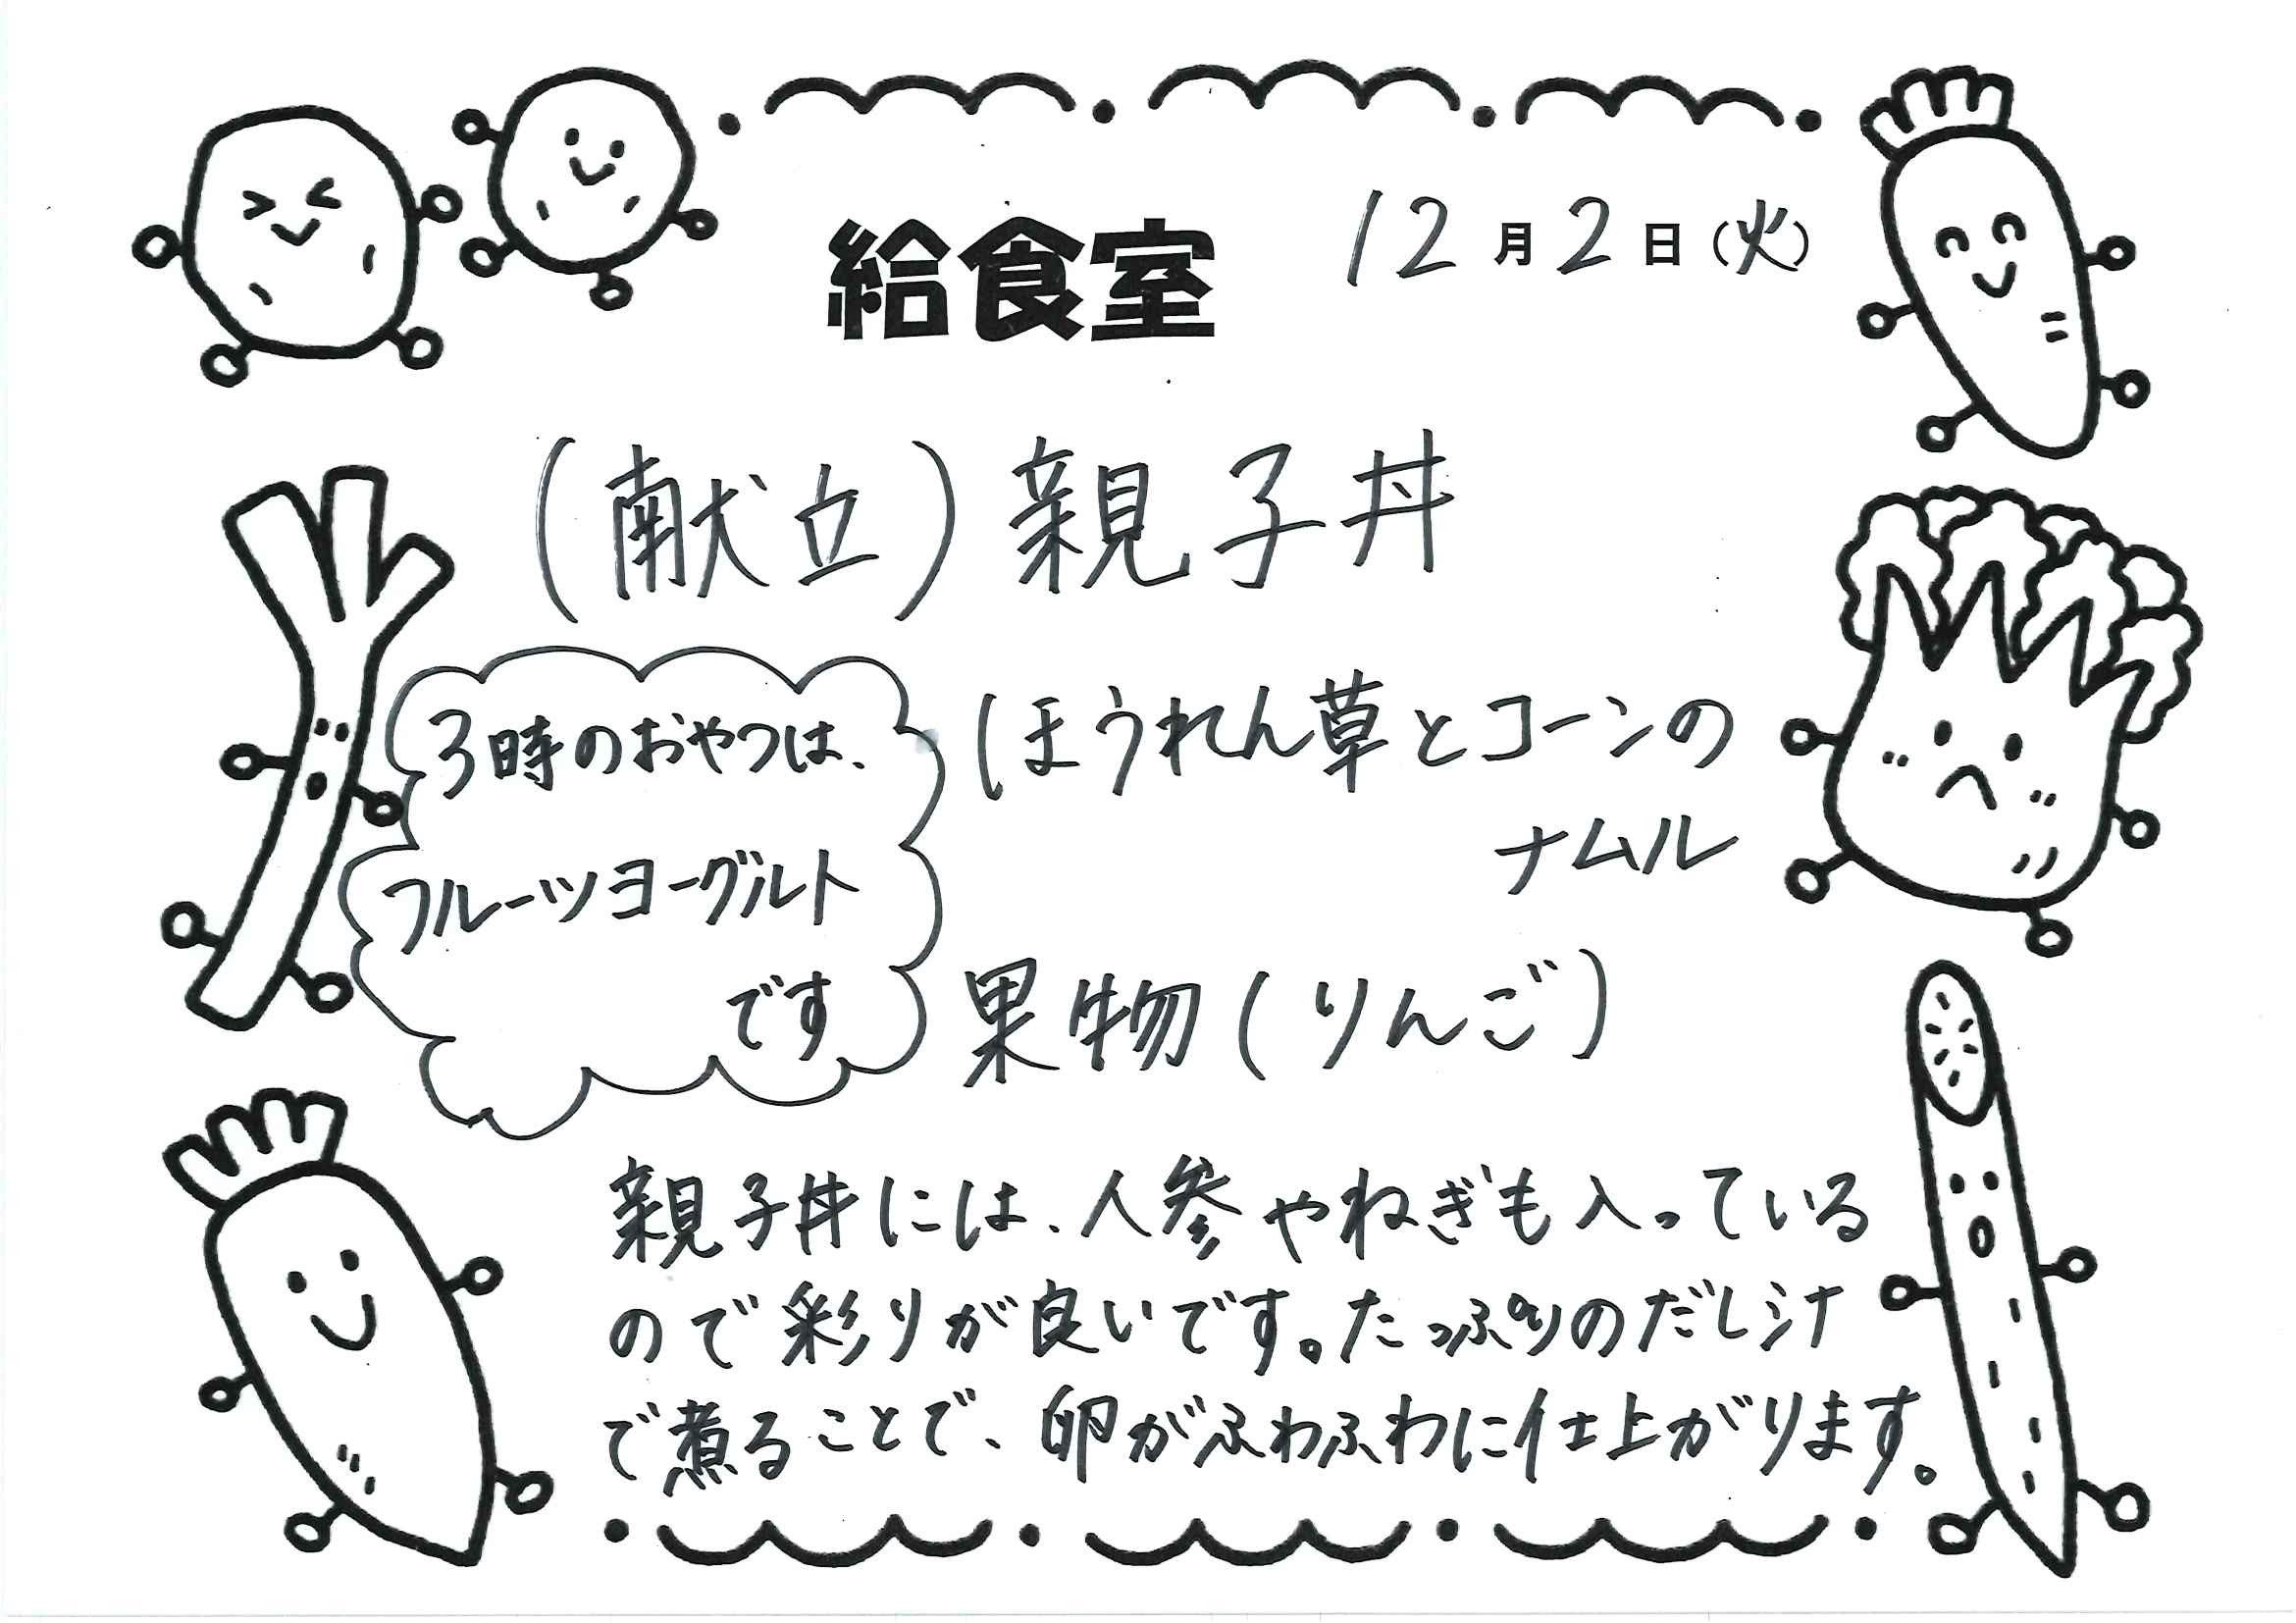 給食室
12月2日(火)
(献立)親子丼
ほうれん草とコーンの
ナムル
果物(りんご)
3時のおやつは、
フルーツヨーグルト
です
親子丼には、人参やねぎも入っている
ので彩りが良いです。たっぷりのだし汁
で煮ることで、卵がふわふわに仕上がります。